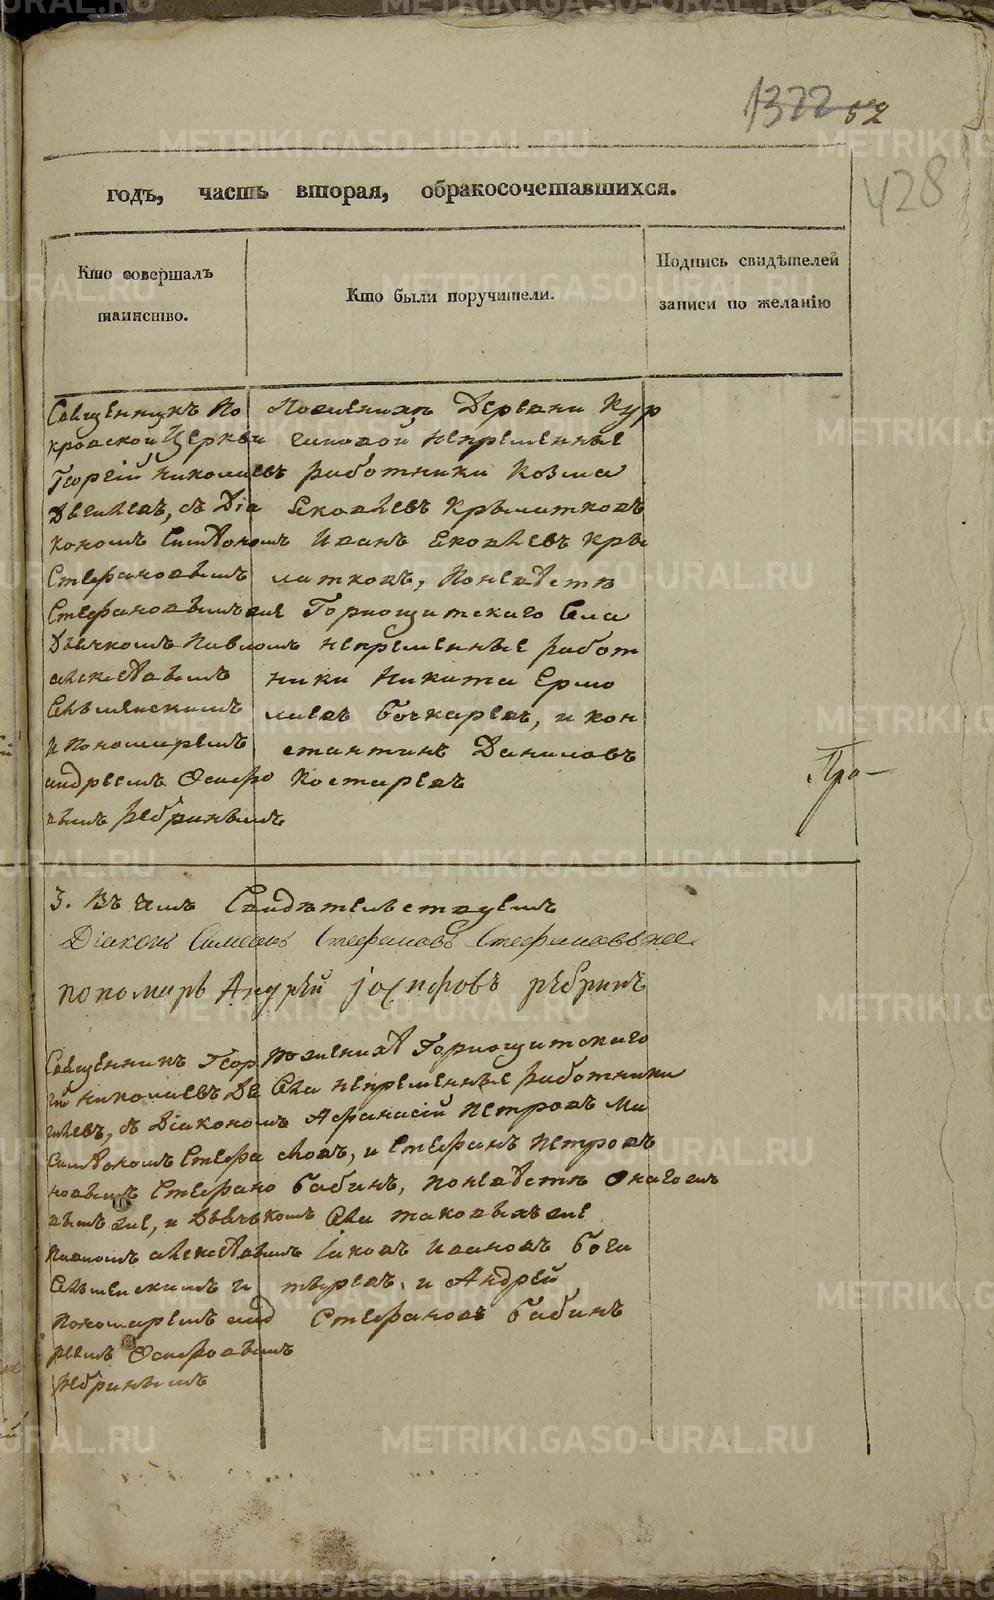 1372 62
428
годъ, часть вторая, обракосочетавшихся.
Кто совершалъ
таинство.
Кто были поручители.
Подпись свидѣтелей
записи по желанію
Священникъ По
кровской Церкви
Георгій Николаевъ
съ Діа
кономъ Симеономъ
Стефановымъ
Стефановымъ же
Дьячкомъ Павломъ
Алексѣевымъ
и Пономаремъ
Андреемъ Осипо
вымъ Ребринымъ
По женихѣ Деревни Кур
гановой непременные
работники Козма
Яковлевъ Крылатковъ
Иванъ Яковлевъ Кры
латковъ, по невѣстѣ
Горнощитскаго Села
непременные работ
ники Никита Ермо
лаевъ Бочкаревъ, и Кон
стантинъ Даниловъ
Костаревъ
Пра-
3. Въ чемъ Свидѣтельствуемъ
Діаконъ Симеонъ Стефановъ Стефановыхже
пономарь Андрей Іосифовъ Ребринъ
Священникъ Геор
гій Николаевъ
съ Діакономъ
Симеономъ Стефа
новымъ Стефано
вымъ же, и Дьячкомъ
Павломъ Алексѣевымъ
и
Пономаремъ Анд
реемъ Осиповымъ
Ребринымъ
По женихѣ Горнощитскаго
Села непременные работники
Афанасій Петровъ Ма
и Стефанъ Петровъ
Бабинъ, по невѣстѣ онагожъ
Села таковыхъ же
Іаковъ Ивановъ Бога
тыревъ, и Андрей
Стефановъ Бабинъ
METRIKI.GASO-URAL.RU